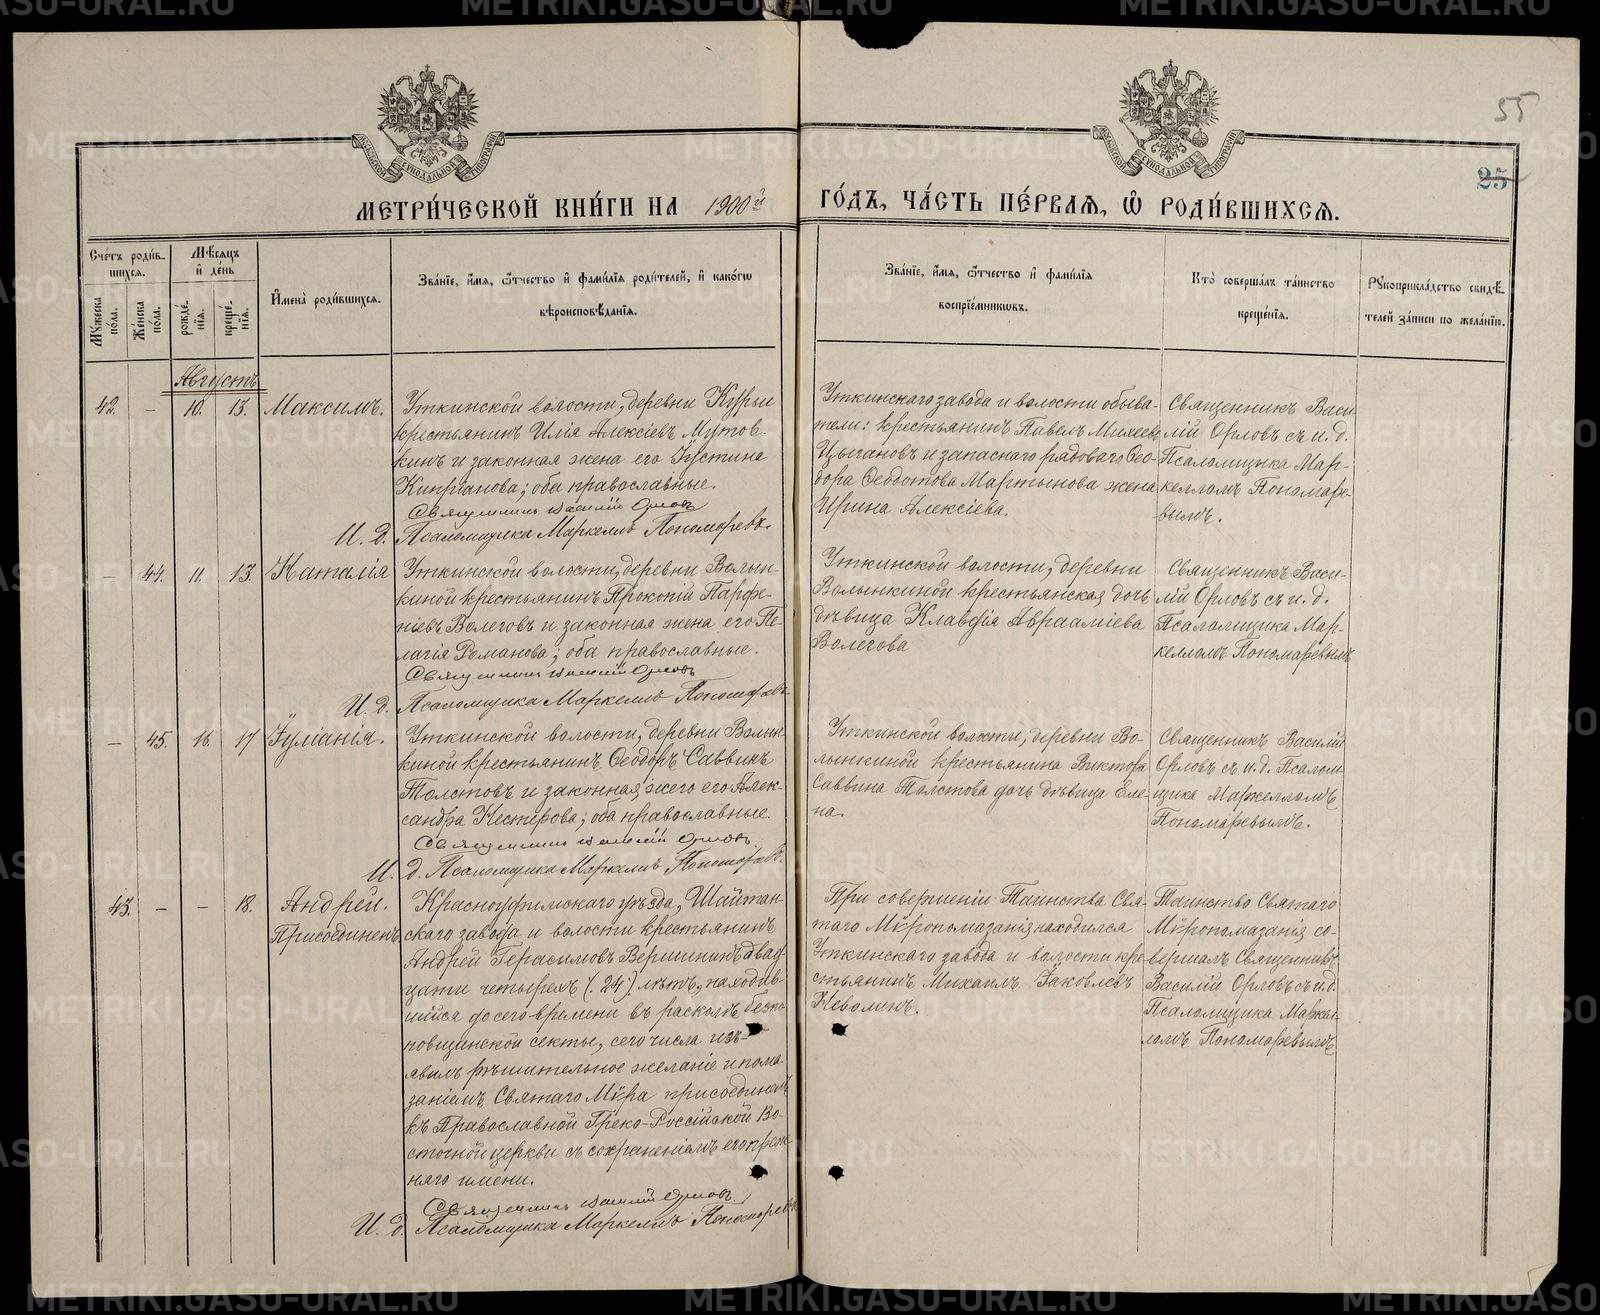 55
25
МЕТРИ́ЧЕСКОЙ КНИ́ГИ НА 1900й ГО́ДЪ, ЧА́СТЬ ПЕ́РВАЯ, Ѡ РОДИ́ВШИХСЯ.
Сче́тъ роди́в-
шихся.
Му́жеска по́ла.
Же́нска по́ла.
Мѣ́сяцъ
и де́нь
рожде́-
нїя.
креще́-
нїя.
Имена̀ роди́вшихся.
Зва́нїе, и́мя, ѻ́тчество и фами́лїя роди́телей, и како́гѡ
вѣроисповѣ́данїя.
Зва́нїе, и́мя, ѻ́тчество и фами́лїя
воспрїе́мниковъ.
Кто̀ соверша́лъ та́инство
креще́нїя.
Рукоприкла́дство свидѣ́-
телей за́писи по жела́нїю.
Августъ
42. — 10. 13. Максимъ.
Уткинской волости, деревни Курьи
крестьянинъ Илія Алексіевъ Мутов-
кинъ и законная жена его Іустина
Кипріанова; оба православные.
Священникъ Василій Орловъ
И. д. Псаломщика Маркеллъ Пономаревъ.
Уткинскаго завода и волости обыва-
тели: крестьянинъ Павелъ Михеевъ
Цыгановъ и запаснаго рядоваго Ѳео-
дора Ѳеодотова Мартынова жена
Ирина Алексіева.
Священникъ Васи
лій Орловъ съ и. д.
Псаломщика Мар-
келломъ Пономаре-
вымъ.
— 44. 11. 13. Наталія
Уткинской волости, деревни Волын-
киной крестьянинъ Прокопій Парфе-
ніевъ Волеговъ и законная жена его Пе-
лагія Романова; оба православные.
Священникъ Василій Орловъ
И. д. Псаломщика Маркеллъ Пономаревъ.
Уткинской волости, деревни
Волынкиной крестьянская дочь
дѣвица Клавдія Авраамiева
Волегова
Священникъ Васи-
лій Орловъ съ и. д.
Псаломщика Мар-
келломъ Пономаревымъ
— 45. 16. 17 Іуліанія.
Уткинской волости, деревни Волын-
киной крестьянинъ Ѳеодоръ Саввинъ
Толстовъ и законная жего его Алек-
сандра Нестерова; оба православные.
Священникъ Василій Орловъ
И. д. Псаломщика Маркеллъ Пономаревъ.
Уткинской волости, деревни Во-
лынкиной крестьянина Виктора
Саввина Толстова дочь дѣвица Еле-
на.
Священникъ Василій
Орловъ съ и. д. Псалом-
щика Маркелломъ
Пономаревымъ.
43. — — 18. Андрей.
Присоединенъ
Красноуфимскаго уѣзда, Шайтан-
скаго завода и волости крестьянинъ
Андрей Герасимовъ Вершининъ двад-
цати четырехъ (24) лѣтъ, находив-
шійся до сего времени въ расколѣ безпо-
повщинской секты, сего числа изъ-
явилъ рѣшительное желаніе и пома-
заніемъ Святаго Мѵра присоединенъ
къ Православной Греко-Россійской Во-
сточной церкви съ сохраненіемъ его преж-
няго имени.
Священникъ Василій Орловъ.
И. д. Псаломщика Маркеллъ Пономаревъ
При совершеніи Таинства Свя-
таго Мѵропомазанія находился
Уткинскаго завода и волости кре-
стьянинъ Михаилъ Іаковлевъ
Неволинъ.
Таинство Святаго
Мѵропомазанія со-
вершалъ Священникъ
Василій Орловъ съ и.д.
Псаломщика Маркел-
ломъ Пономаревымъ